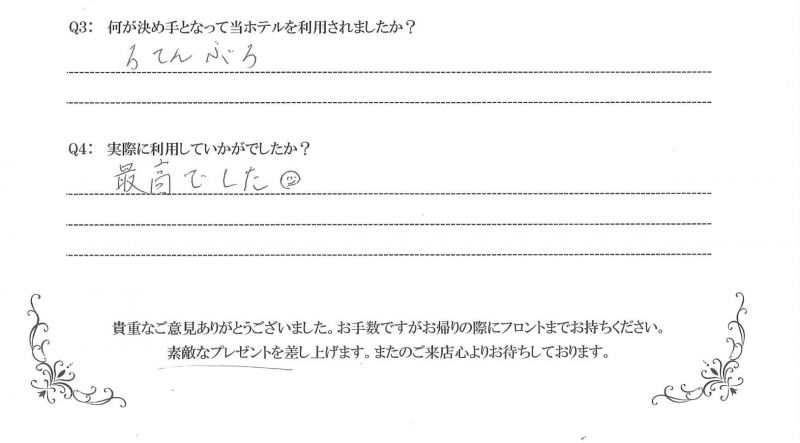 Q3： 何が決め手となって当ホテルを利用されましたか？
ろてんぶろ
Q4： 実際に利用していかがでしたか？
最高でした
貴重なご意見ありがとうございました。お手数ですがお帰りの際にフロントまでお持ちください。
素敵なプレゼントを差し上げます。またのご来店心よりお待ちしております。